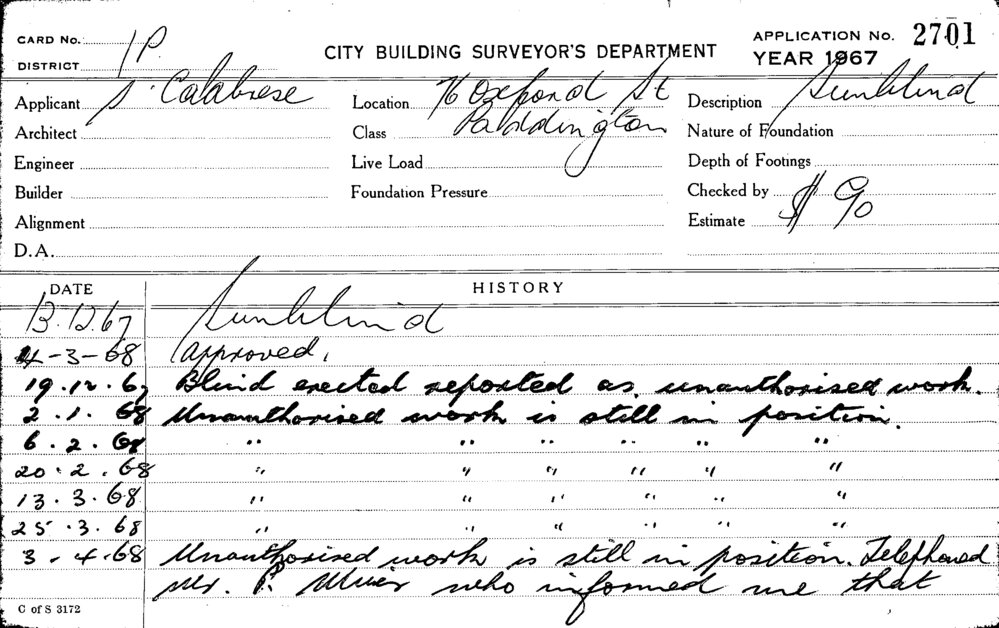 CARD No. 1P
DISTRICT
CITY BUILDING SURVEYOR'S DEPARTMENT
APPLICATION No. 2701
YEAR 1967
Applicant S. Calabrese
Location 76 Oxford St
Description Sunblind
Architect
Class Paddington
Nature of Foundation
Engineer
Live Load
Depth of Footings
Builder
Foundation Pressure
Checked by
Alignment
Estimate $ 90
D.A.
DATE HISTORY
13.12.67 Sunblind
4-3-68 Approved.
19.12.67 Blind erected reported as unauthorised work.
2.1.68 Unauthorised work is still in position.
6.2.68 " " " " " "
20.2.68 " " " " " "
13.3.68 " " " " " "
25.3.68 " " " " " "
3-4-68 Unauthorised work is still in position. Telephoned
Mr. P. who informed me that
C of S 3172